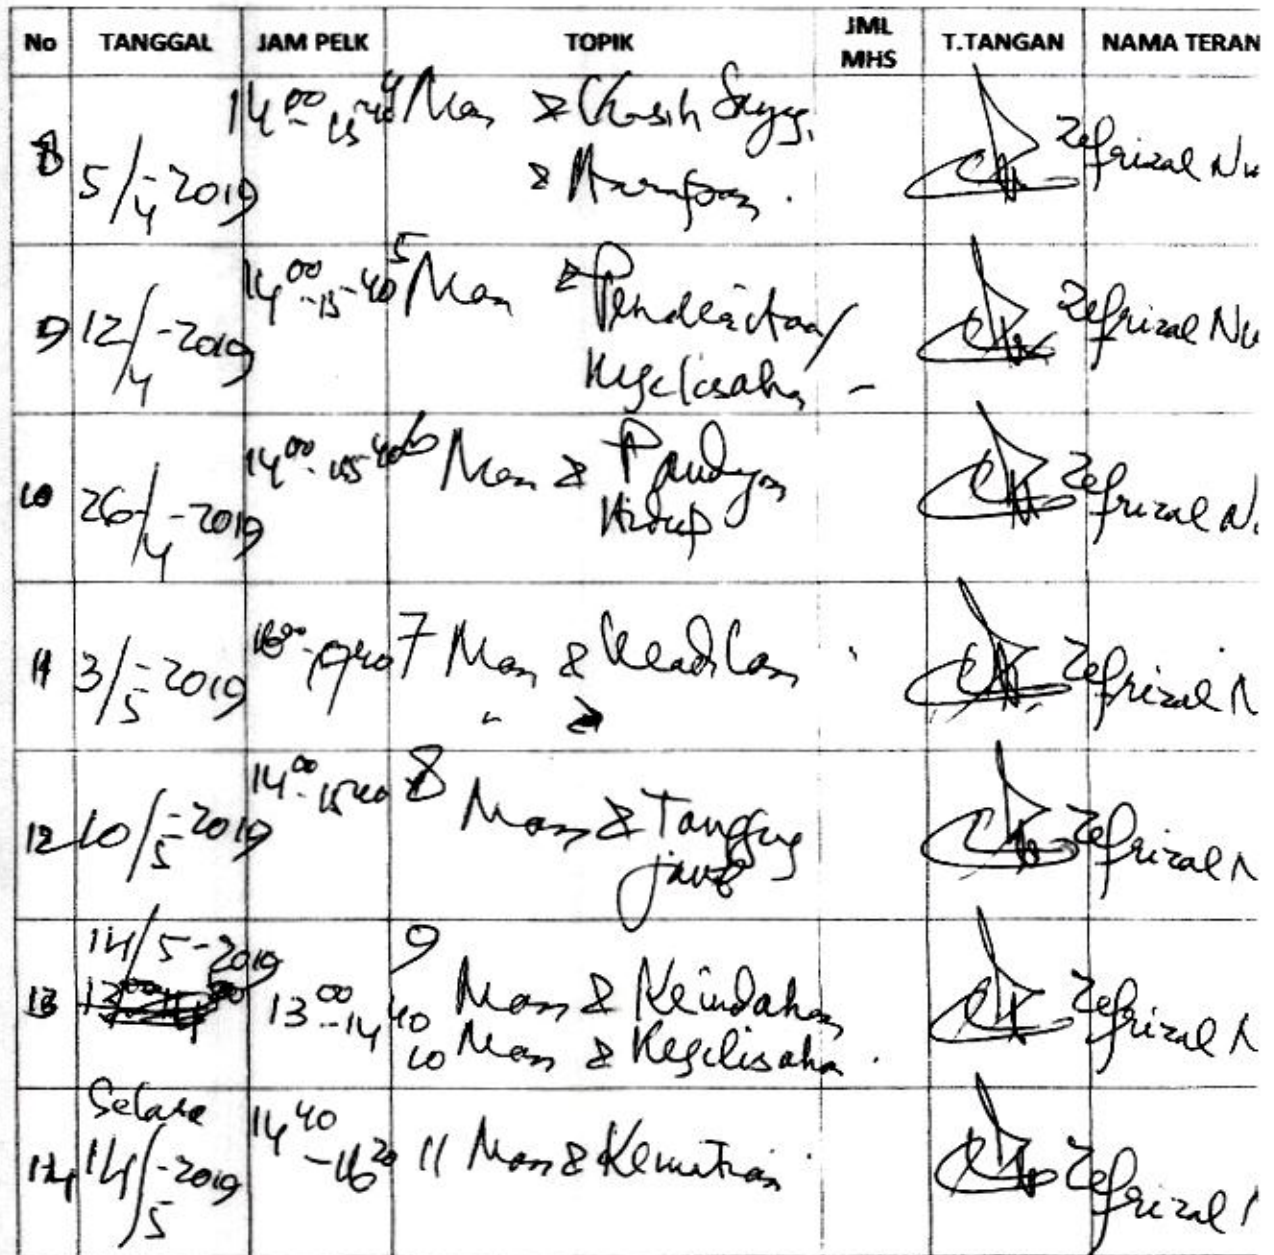 No TANGGAL JAM PELK TOPIK JML MHS T.TANGAN NAMA TERAN
8 5/4-2019 14 00 - 15 40 4 Man & Kasih Sayg.
& Harapan. Zefrizal Nu
9 12/4-2019 14 00 - 15 40 5 Man & Penderitaan/
Kegelisahan - Zefrizal Nu
10 26/4-2019 14 00 - 15 40 6 Man & Pandgan
Hidup Zefrizal N.
11 3/5-2019 7 Man & Keadilan Zefrizal N
12 10/5-2019 14 00 - 15 40 8 Man & Tanggug
jawab Zefrizal N
13 14/5-2019 13 00 - 14 40 9 Man & Keindahan
10 Man & Kegelisahan. Zefrizal N
14 Selasa
14/5-2019 14 40 - 16 20 11 Man & Zefrizal